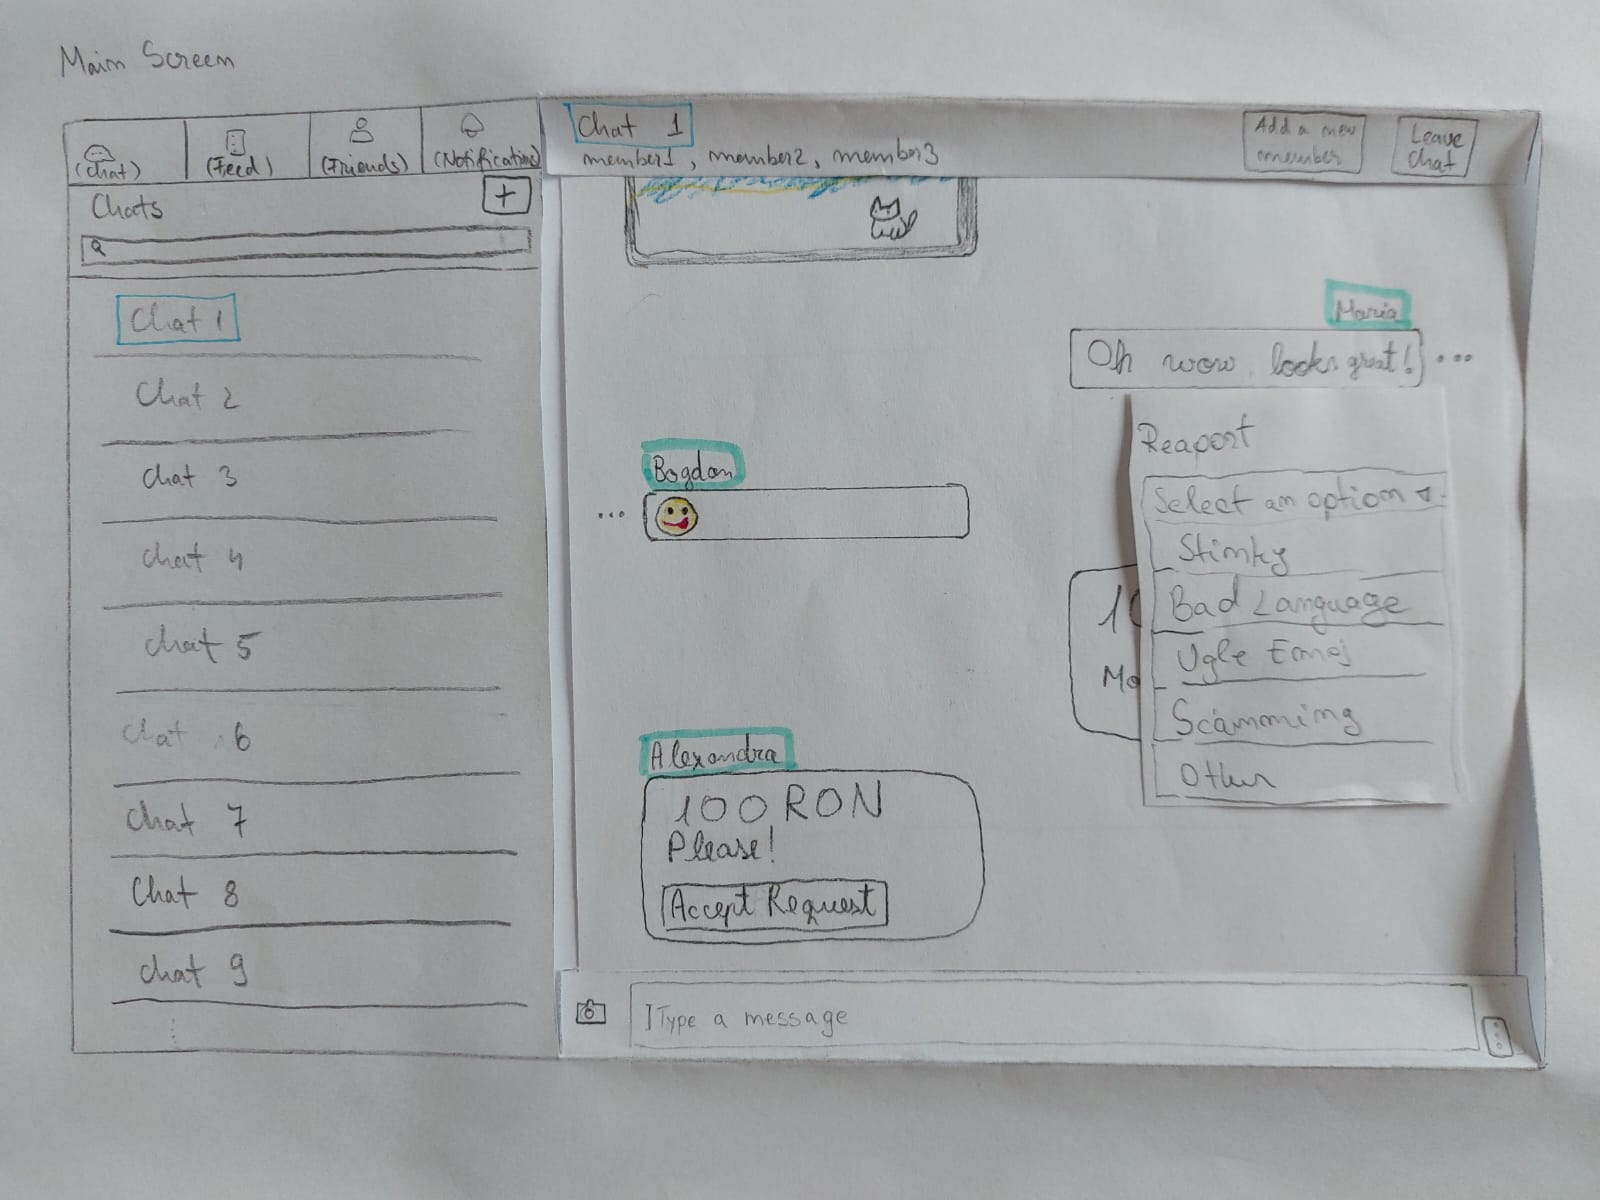 Main Screen
(Chat) (Feed) (Friends) (Notifications)
Chats +
Chat 1
Chat 2
Chat 3
Chat 4
Chat 5
Chat 6
Chat 7
Chat 8
Chat 9
Chat 1
member1, member2, member3
Add a new
member
Leave
Chat
Maria
Oh wow, looks great! ...
Reaport
Select an option
Stinky
Bad Language
Ugle Emoj
Scamming
Other
Bogdan
...
10
Mo
Alexandra
100 RON
Please!
Accept Request
Type a message